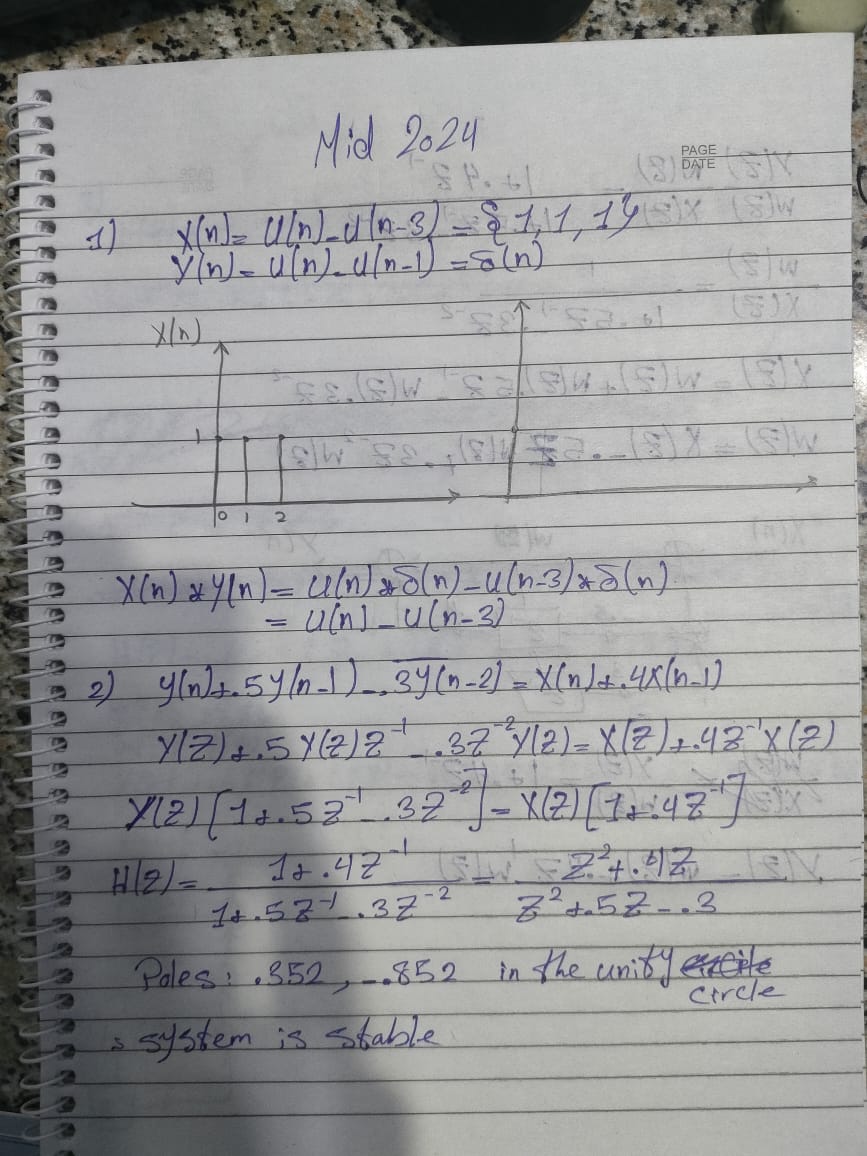 Mid 2024
PAGE
DATE
1) X(n) = U(n) - U(n-3) = {1, 1, 1}
Y(n) = U(n) - U(n-1) = δ(n)
X(n)
1
0 1 2
X(n) * Y(n) = U(n) * δ(n) - U(n-3) * δ(n)
= U(n) - U(n-3)
2) y(n) + .5y(n-1) - .3y(n-2) = X(n) + .4X(n-1)
Y(Z) + .5 Y(Z) Z⁻¹ - .3Z⁻² Y(Z) = X(Z) + .4Z⁻¹ X(Z)
Y(Z) [1 + .5Z⁻¹ - .3Z⁻²] = X(Z) [1 + .4Z⁻¹]
H(Z) = 1 + .4Z⁻¹ / 1 + .5Z⁻¹ - .3Z⁻² = Z² + .4Z / Z² + .5Z - .3
Poles: .352, -.852 in the unity circle
system is stable